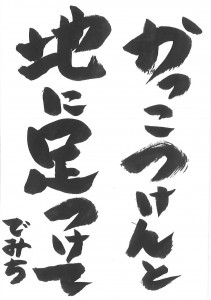 かっこつけんと
地に足つけて
でみち